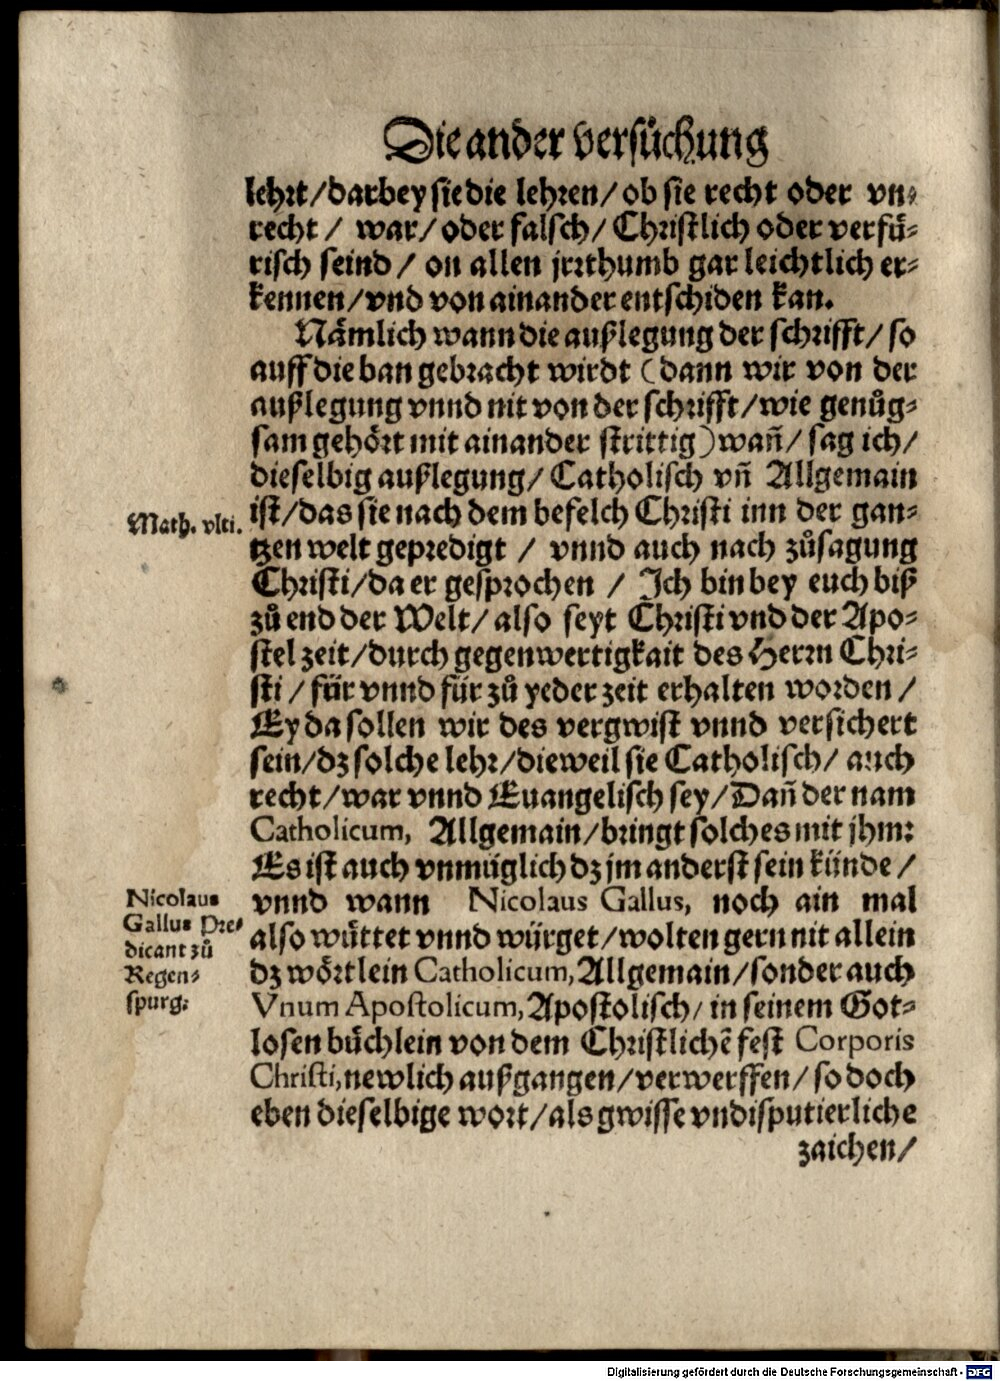 Die ander versůchung
lehrt/darbey sie die lehren/ob sie recht oder vn-
recht/ war/oder falsch/Christlich oder verfü-
risch seind/ on allen jrrthumb gar leichtlich er-
kennen/vnd von ainander entschiden kan.
Nämlich wann die außlegung der schrifft/so
auff die ban gebracht wirdt (dann wir von der
außlegung vnnd nit von der schrifft/wie genůg-
sam gehört mit ainander strittig) wañ/sag ich/
dieselbig außlegung/Catholisch vñ Allgemain
Math. vlti.
ist/das sie nach dem befelch Christi inn der gan-
tzen welt gepredigt / vnnd auch nach zůsagung
Christi/da er gesprochen / Ich bin bey euch biß
zů end der Welt/also seyt Christi vnd der Apo-
stel zeit/durch gegenwertigkait des Herrn Chri-
sti/für vnnd für zů yeder zeit erhalten worden/
Ey da sollen wir des vergwist vnnd versichert
sein/dz solche lehr/dieweil sie Catholisch/auch
recht/war vnnd Euangelisch sey/Dañ der nam
Catholicum, Allgemain/bringt solches mit jhm:
Es ist auch vnmüglich dz jm anderst sein künde/
Nicolaus
Gallus Pre-
dicant zů
Regen-
spurg.
vnnd wann Nicolaus Gallus, noch ain mal
also wüttet vnnd würget/wolten gern nit allein
dz wörtlein Catholicum, Allgemain/sonder auch
Vnum Apostolicum, Apostolisch/in seinem Got-
losen büchlein von dem Christlichē fest Corporis
Christi, newlich außgangen/verwerffen/so doch
eben dieselbige wort/als gwisse vndisputierliche
zaichen/
Digitalisierung gefördert durch die Deutsche Forschungsgemeinschaft - DFG